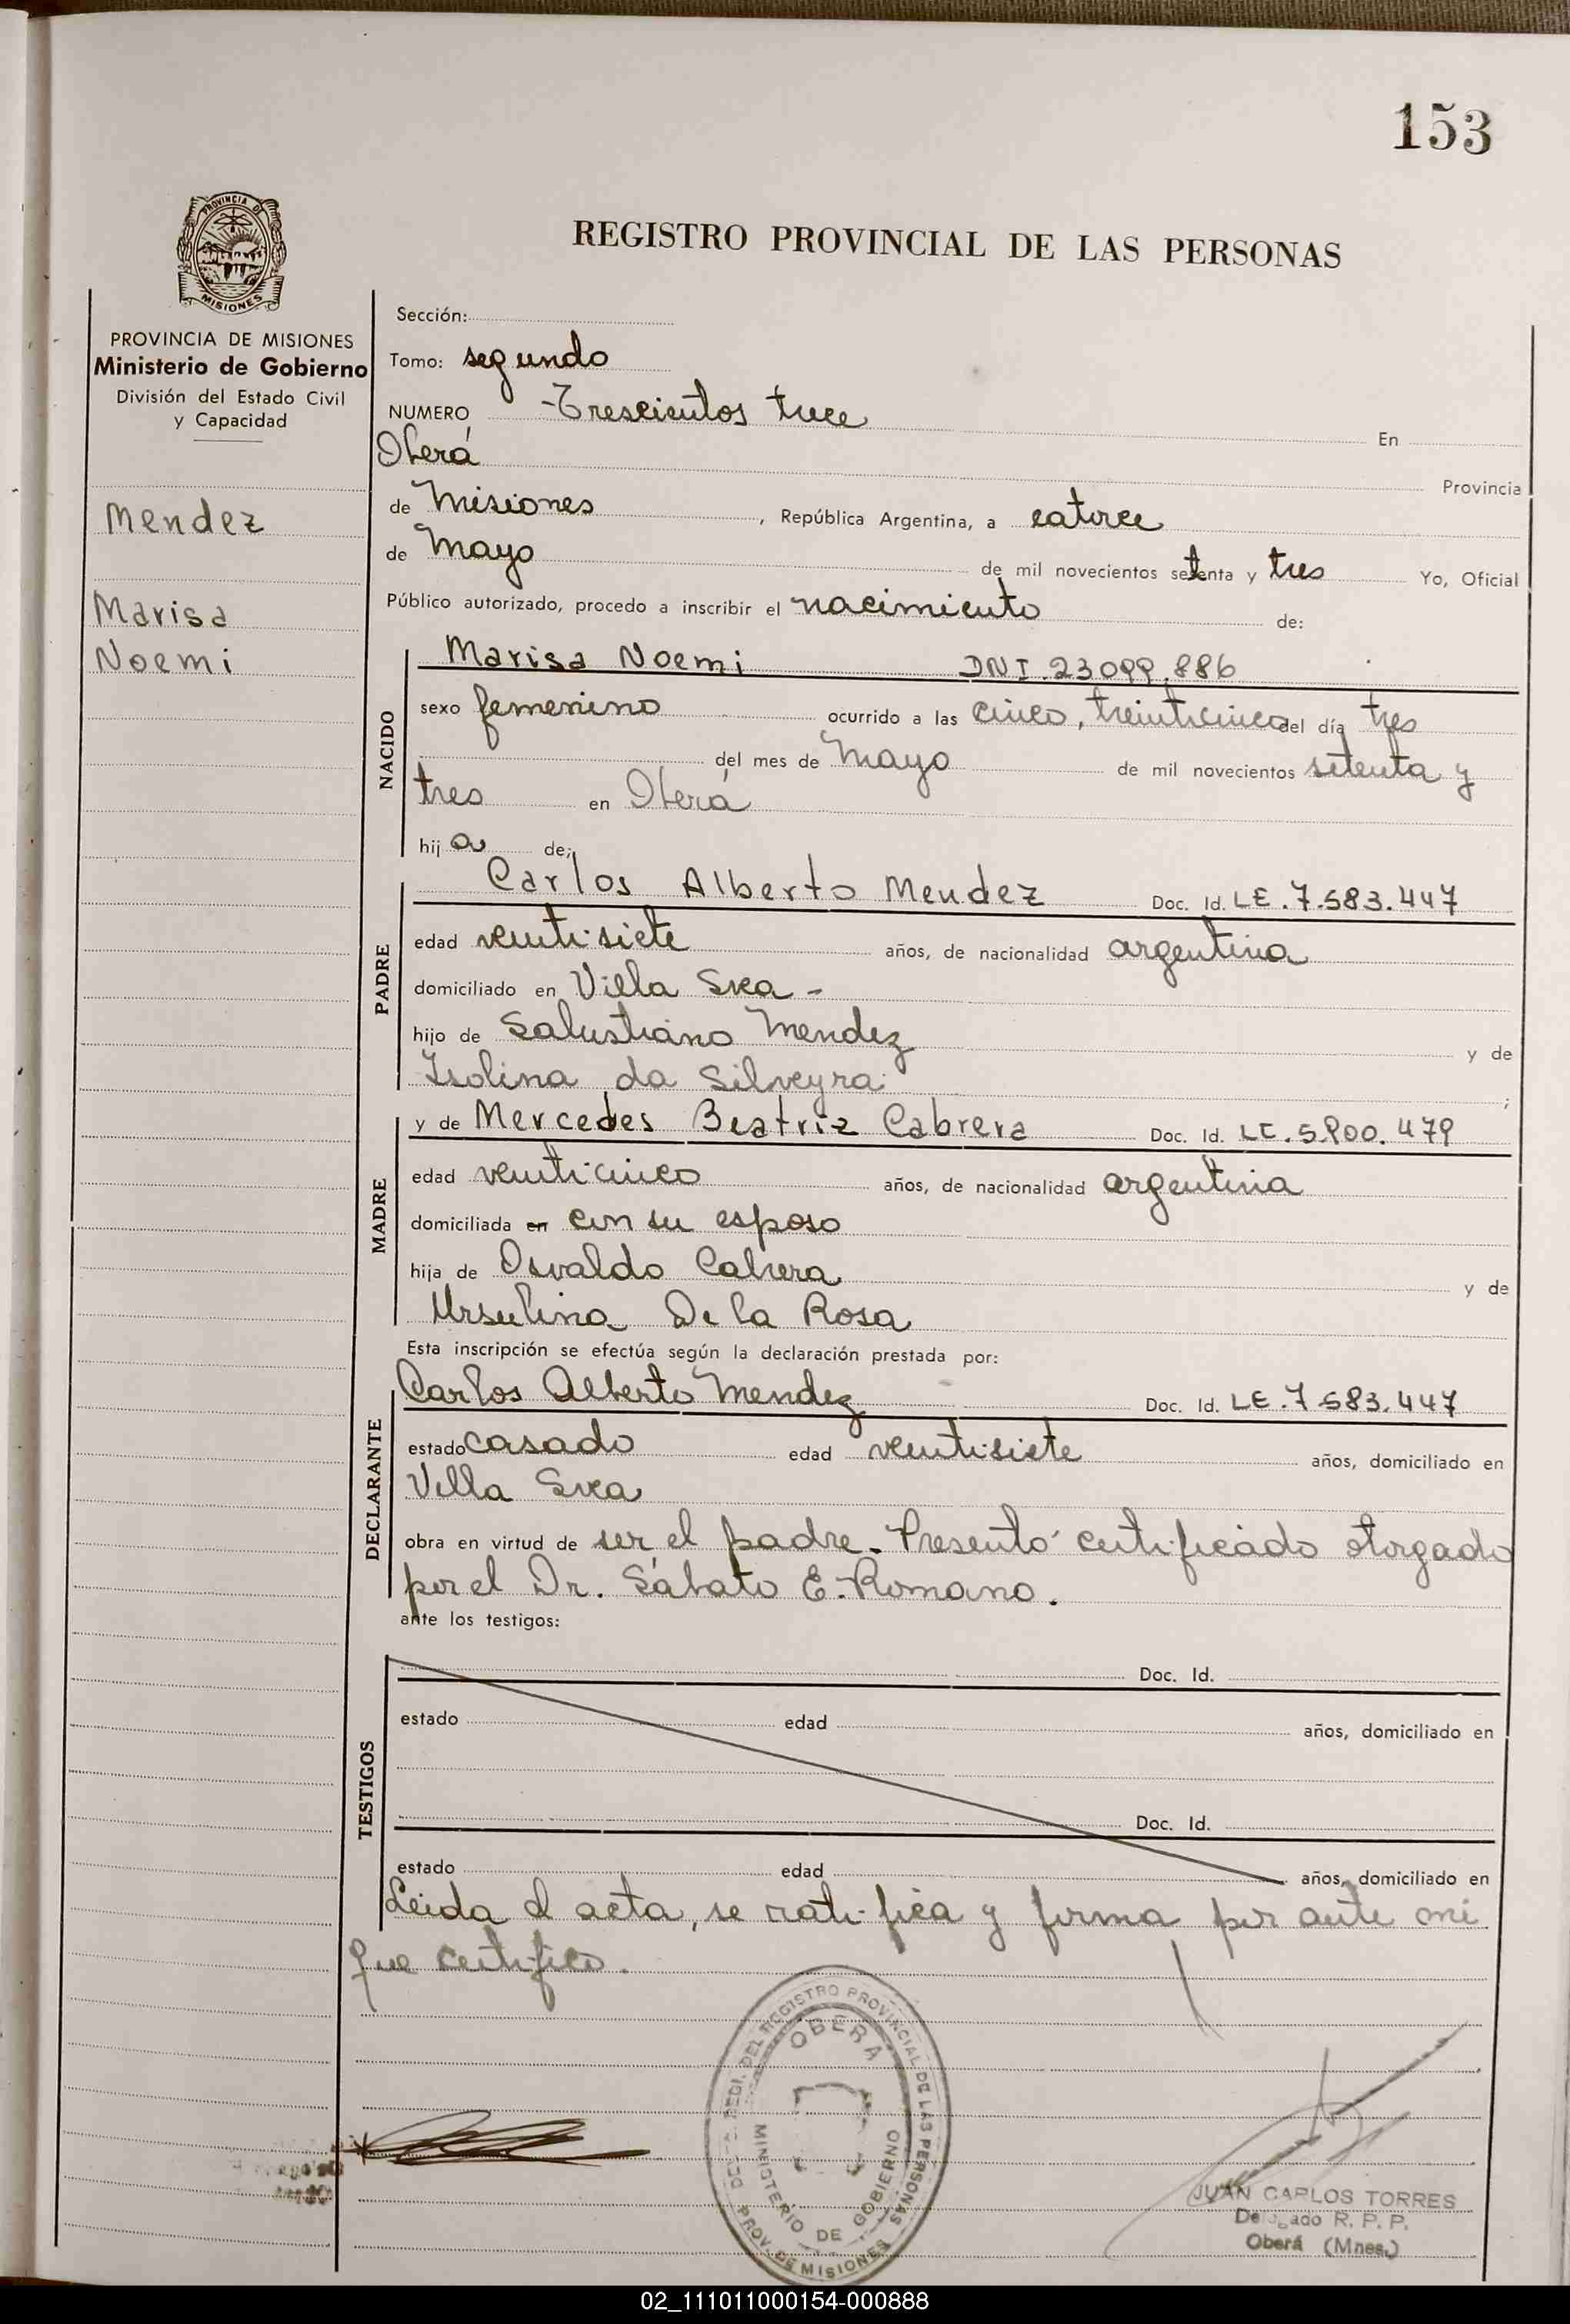 153
PROVINCIA DE
MISIONES
REGISTRO PROVINCIAL DE LAS PERSONAS
PROVINCIA DE MISIONES
Ministerio de Gobierno
División del Estado Civil
y Capacidad
Mendez
Marisa
Noemi
Sección:
Tomo: segundo
NUMERO - Trescientos trece En
Oberá Provincia
de Misiones, República Argentina, a catorce
de Mayo de mil novecientos setenta y tres Yo, Oficial
Público autorizado, procedo a inscribir el nacimiento de:
NACIDO
Marisa Noemi DNI.23099.886
sexo femenino ocurrido a las cinco, treinticinco del día tres
del mes de Mayo de mil novecientos setenta y
tres en Oberá
hija de:
PADRE
Carlos Alberto Mendez Doc. Id. LE.7.583.447
edad veinti-siete años, de nacionalidad argentina
domiciliado en Villa Svea -
hijo de Salustiano Mendez y de
Isolina da Silveyra;
MADRE
y de Mercedes Beatriz Cabrera Doc. Id. LC.5.900.479
edad veinti-cinco años, de nacionalidad argentina
domiciliada en con su esposo
hija de Osvaldo Cabrera y de
Ursulina De la Rosa
Esta inscripción se efectúa según la declaración prestada por:
DECLARANTE
Carlos Alberto Mendez Doc. Id. LE.7.583.447
estado casado edad veinti-siete años, domiciliado en
Villa Svea
obra en virtud de ser el padre. Presentó certificado otorgado
por el Dr. Sábato E. Romano.
ante los testigos:
TESTIGOS
Doc. Id.
estado edad años, domiciliado en
Doc. Id.
estado edad años, domiciliado en
Leida el acta, se ratifica y firma por ante mi
que certifico.
DEL REGISTRO PROVINCIAL DE LAS PERSONAS
OBERA
MINISTERIO DE GOBIERNO
PROV. DE MISIONES
JUAN CARLOS TORRES
Delegado R. P. P.
Oberá (Mnes.)
02_111011000154-000888